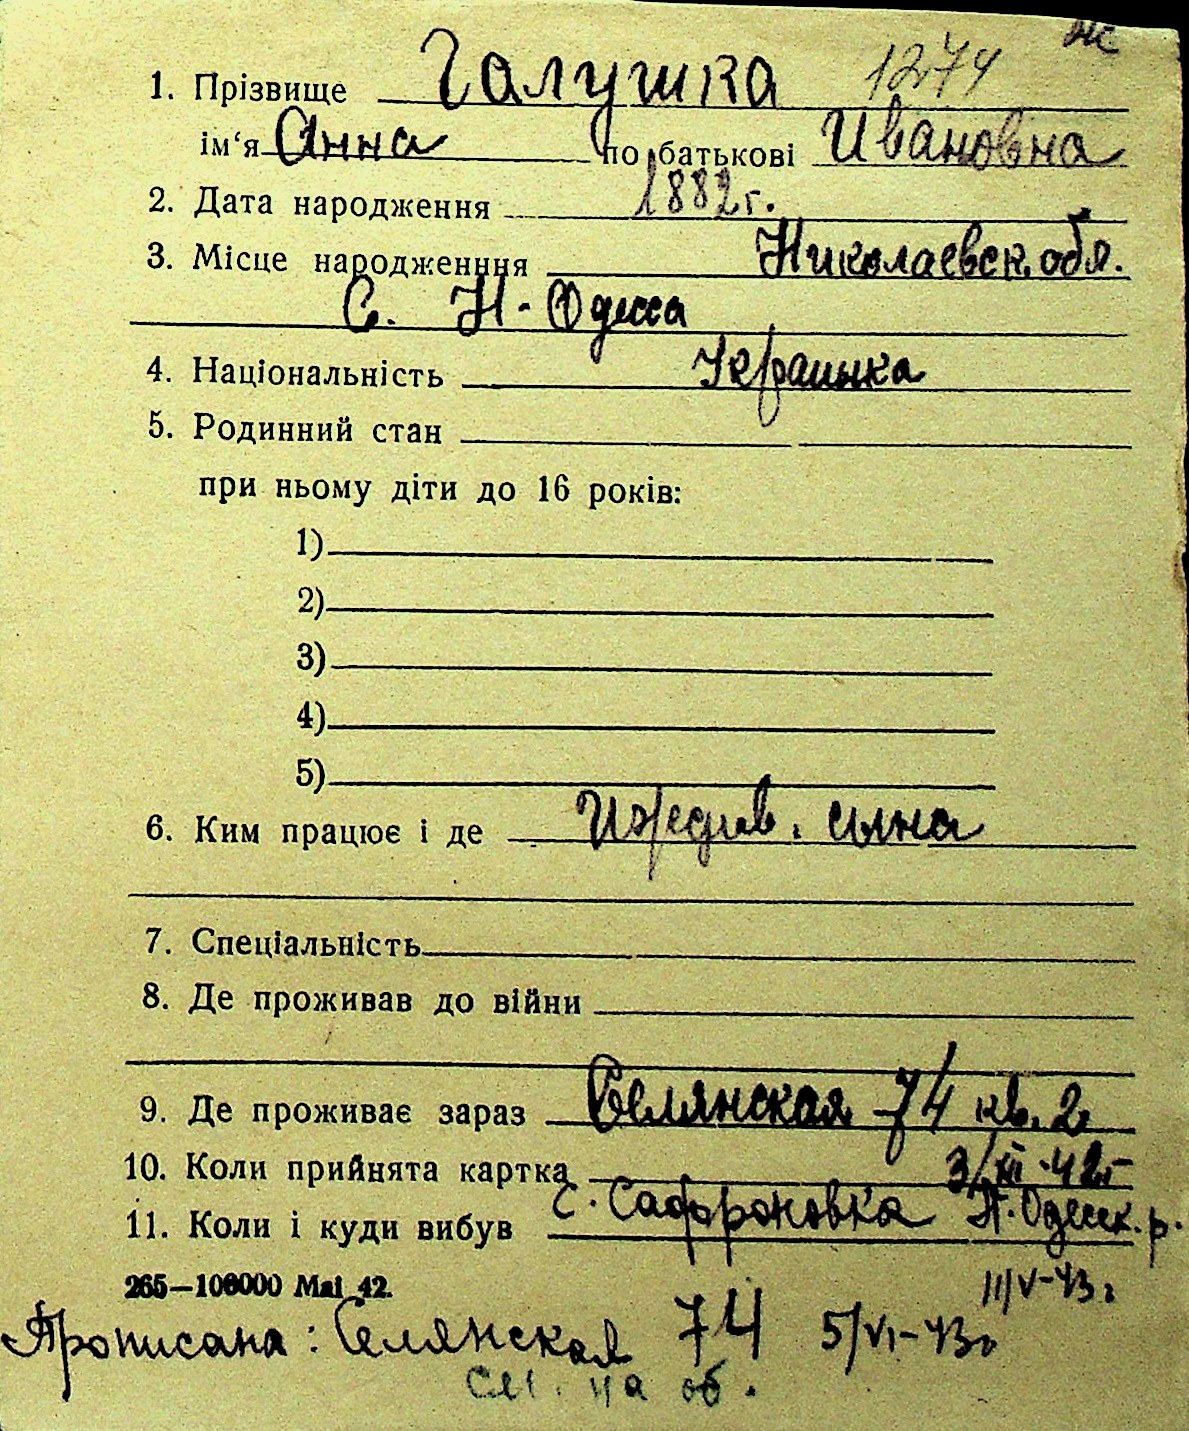 жс
1. Прізвище Галушка 1274
ім‘я Анна по батькові Ивановна
2. Дата народження 1882 г.
3. Місце народженння Николаевск. обл.
С. Н-Одесса
4. Національність Украинка
5. Родинний стан
при ньому діти до 16 років:
1)
2)
3)
4)
5)
6. Ким працює і де Иждив. сына
7. Спеціальність
8. Де проживав до війни
9. Де проживає зараз Селянская 74 кв. 2
10. Коли прийнята картка 3/XII-42 г
11. Коли і куди вибув с. Сафроновка Н.Одесск. р.
265—100000 Маі 42. 11/V-43 г
Прописана: Селянская 74 5/VI-43 г
см. на об.